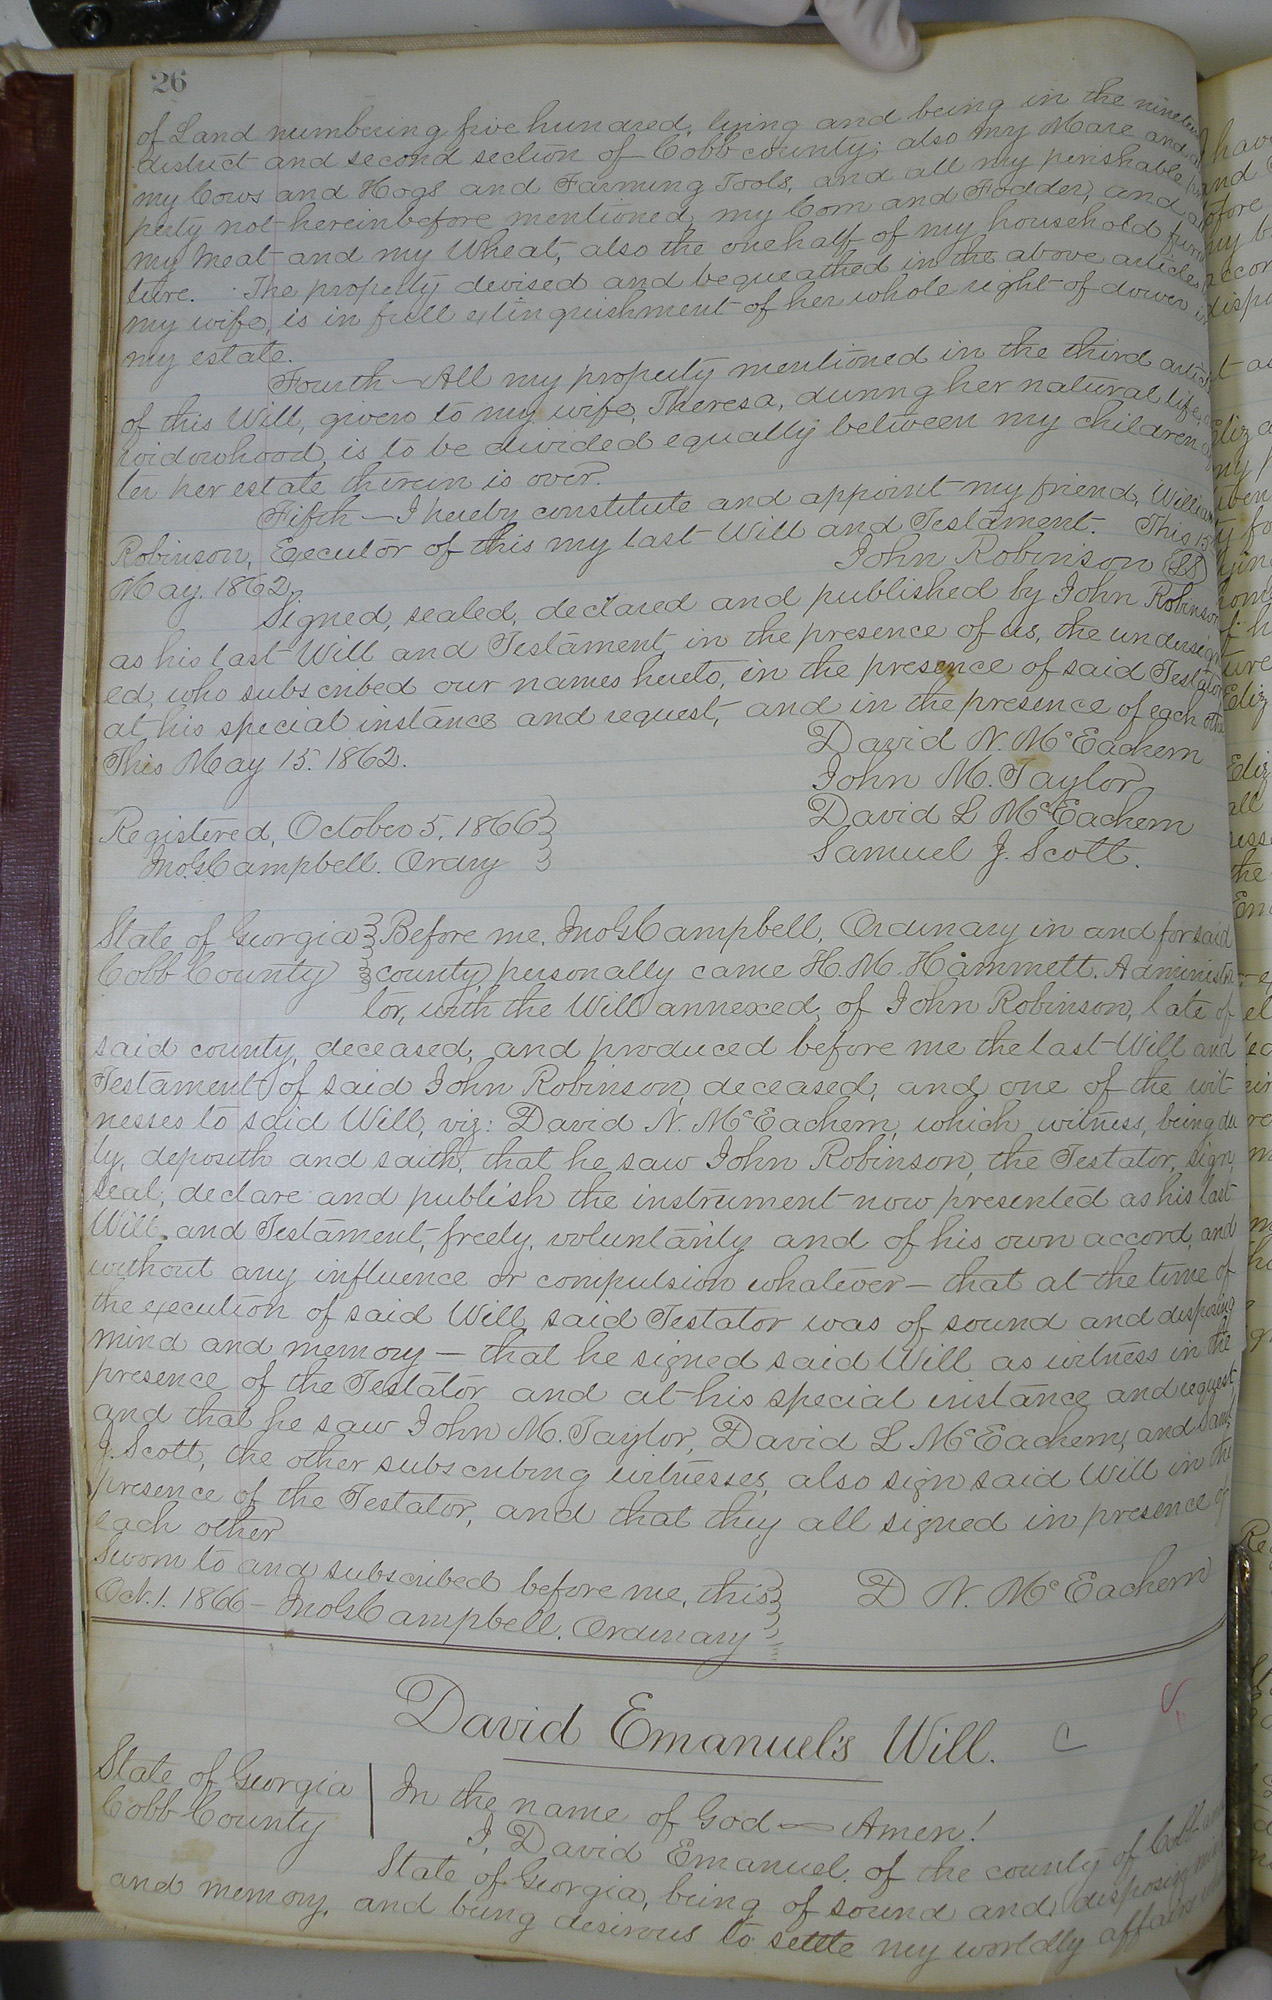 26
of Land numbering five hundred, lying and being in the nineteen
district and second section of Cobb county; also my Mare and
my Cows and Hogs and Farming Tools, and all my perishable
perty not hereinbefore mentioned, my Corn and Fodder, and
my Meat and my Wheat, also the one half of my household furni
ture. The property devised and bequeathed in the above articles
my wife, is in full extinguishment of her whole right of dower in
my estate.
Fourth — All my property mentioned in the third article
of this Will, given to my wife, Theresa, during her natural life,
widowhood, is to be divided equally between my children
ter her estate therein is over.
Fifth — I hereby constitute and appoint my friend, William
Robinson, Executor of this my last Will and Testament. This 15
May. 1862.
John Robinson (LS)
Signed, sealed, declared and published by John Robinson
as his last Will and Testament, in the presence of us, the undersign
ed, who subscribed our names hereto, in the presence of said Testator
at his special instance and request, and in the presence of each other
This May 15. 1862.
David N. McEachern
John M. Taylor
David L McEachern
Samuel J. Scott.
Registered, October 5, 1866
Jno G Campbell. Ordry
State of Georgia
Cobb County
Before me, Jno G Campbell, Ordinary in and for said
county, personally came H. M. Hammett, Administra
tor, with the Will annexed, of John Robinson, late of
said county, deceased, and produced before me the last Will and
Testament of said John Robinson, deceased, and one of the wit-
nesses to said Will, viz: David N. McEachern, which witness, being du
ly, deposeth and saith, that he saw John Robinson, the Testator, sign,
seal, declare and publish the instrument now presented as his last
Will and Testament, freely, voluntarily and of his own accord, and
without any influence or compulsion whatever — that at the time of
the execution of said Will said Testator was of sound and disposing
mind and memory — that he signed said Will as witness in the
presence of the Testator and at his special instance and request,
and that he saw John M. Taylor, David L McEachern, and Saml
J. Scott, the other subscribing witnesses, also sign said Will in the
presence of the Testator, and that they all signed in presence of
each other
Sworn to and subscribed before me, this
Oct. 1. 1866 — Jno G Campbell. Ordinary
D N. McEachern
David Emanuel's Will.
State of Georgia
Cobb County
In the name of God — Amen!
I, David Emanuel, of the county of Cobb and
State of Georgia, being of sound and disposing mind
and memory, and being desirous to settle my worldly affairs